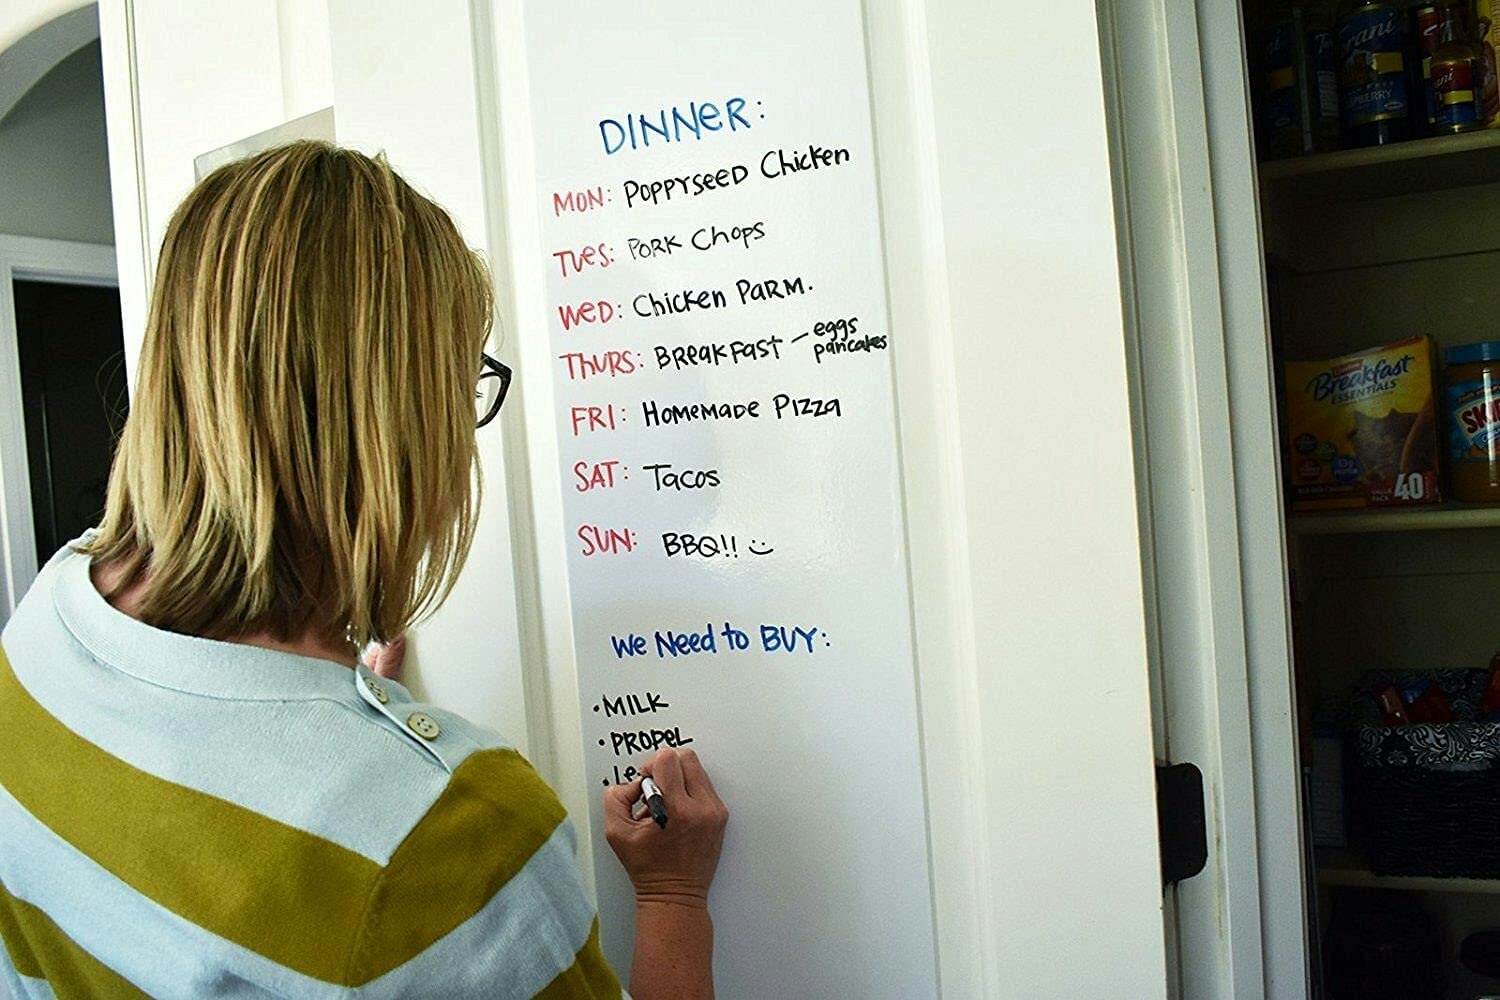 DINNER:
MON: POPPYSEED Chicken
TUES: PORK Chops
WED: Chicken PARM.
THURS: BREAKFAST – eggs
pancakes
FRI: HOMEMADE PIZZA
SAT: TACOS
SUN: BBQ!!
We Need to BUY:
• MILK
• PROPEL
• Le
Breakfast
ESSENTIALS
VALUE
PACK
40
SKI
rani